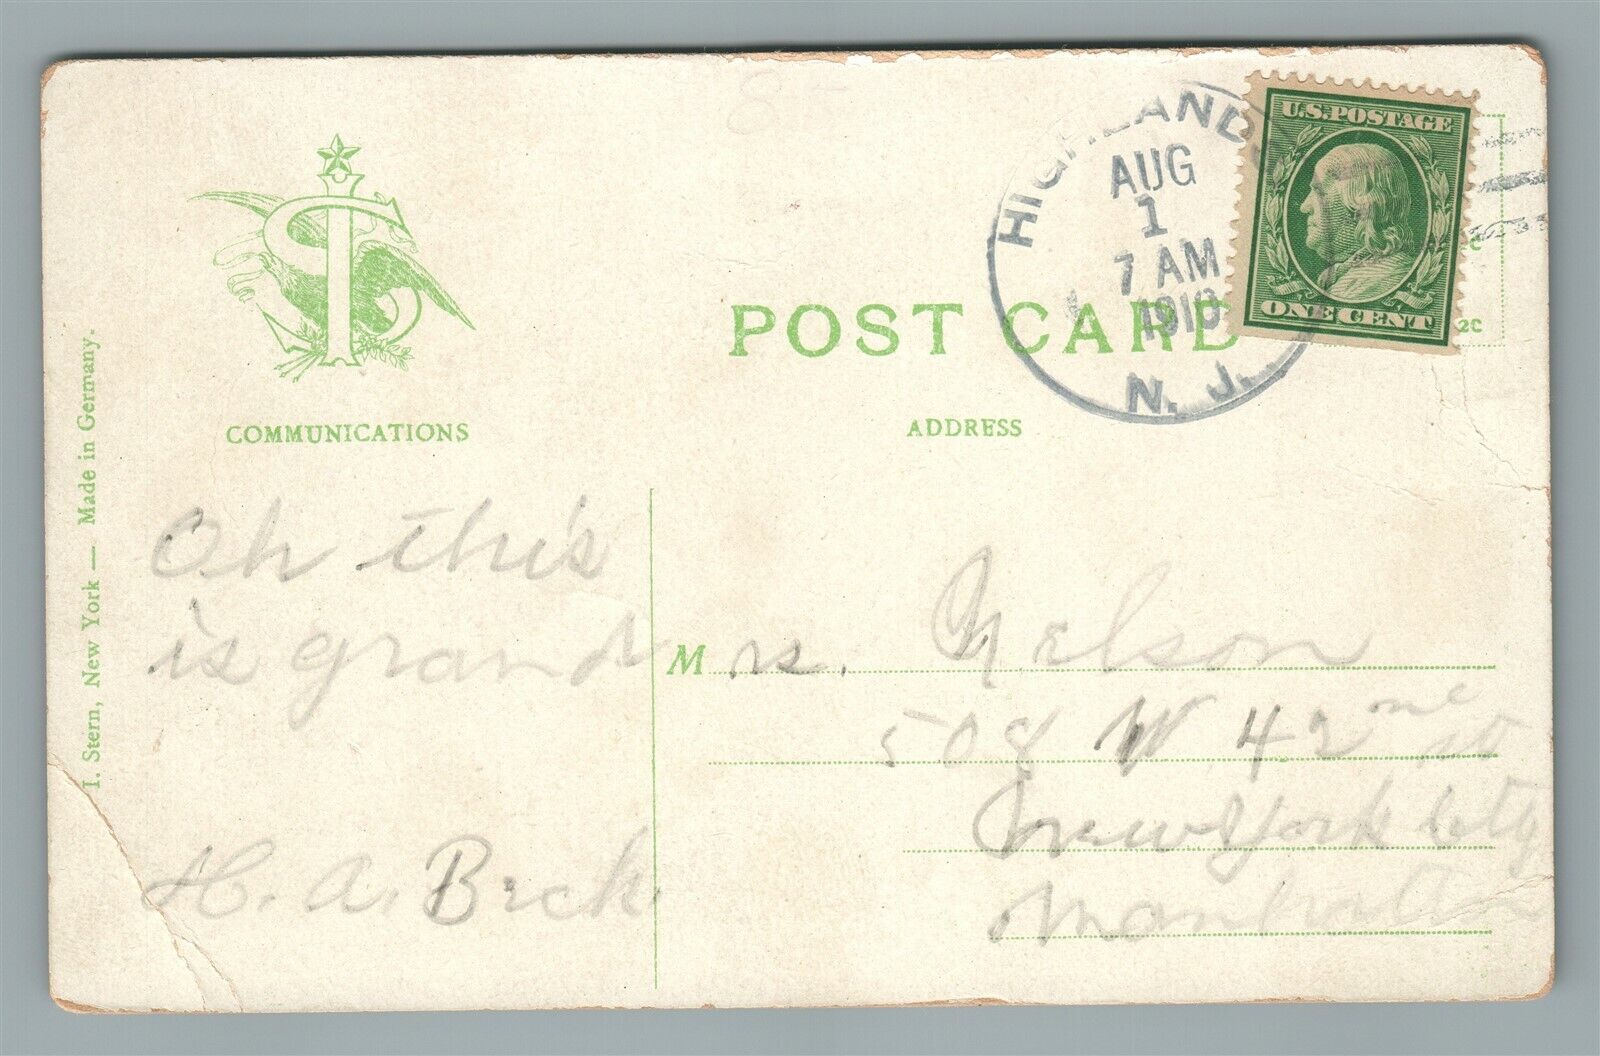 HIGHLANDS
AUG
1
7 AM
1910
N. J.
U.S. POSTAGE
ONE CENT
2C
POST CARD
COMMUNICATIONS
ADDRESS
I. Stern, New York — Made in Germany.
Oh this
is grand
H. A. Beck.
Mrs. Nelson
508 W 42nd St
New York City
Manhattan